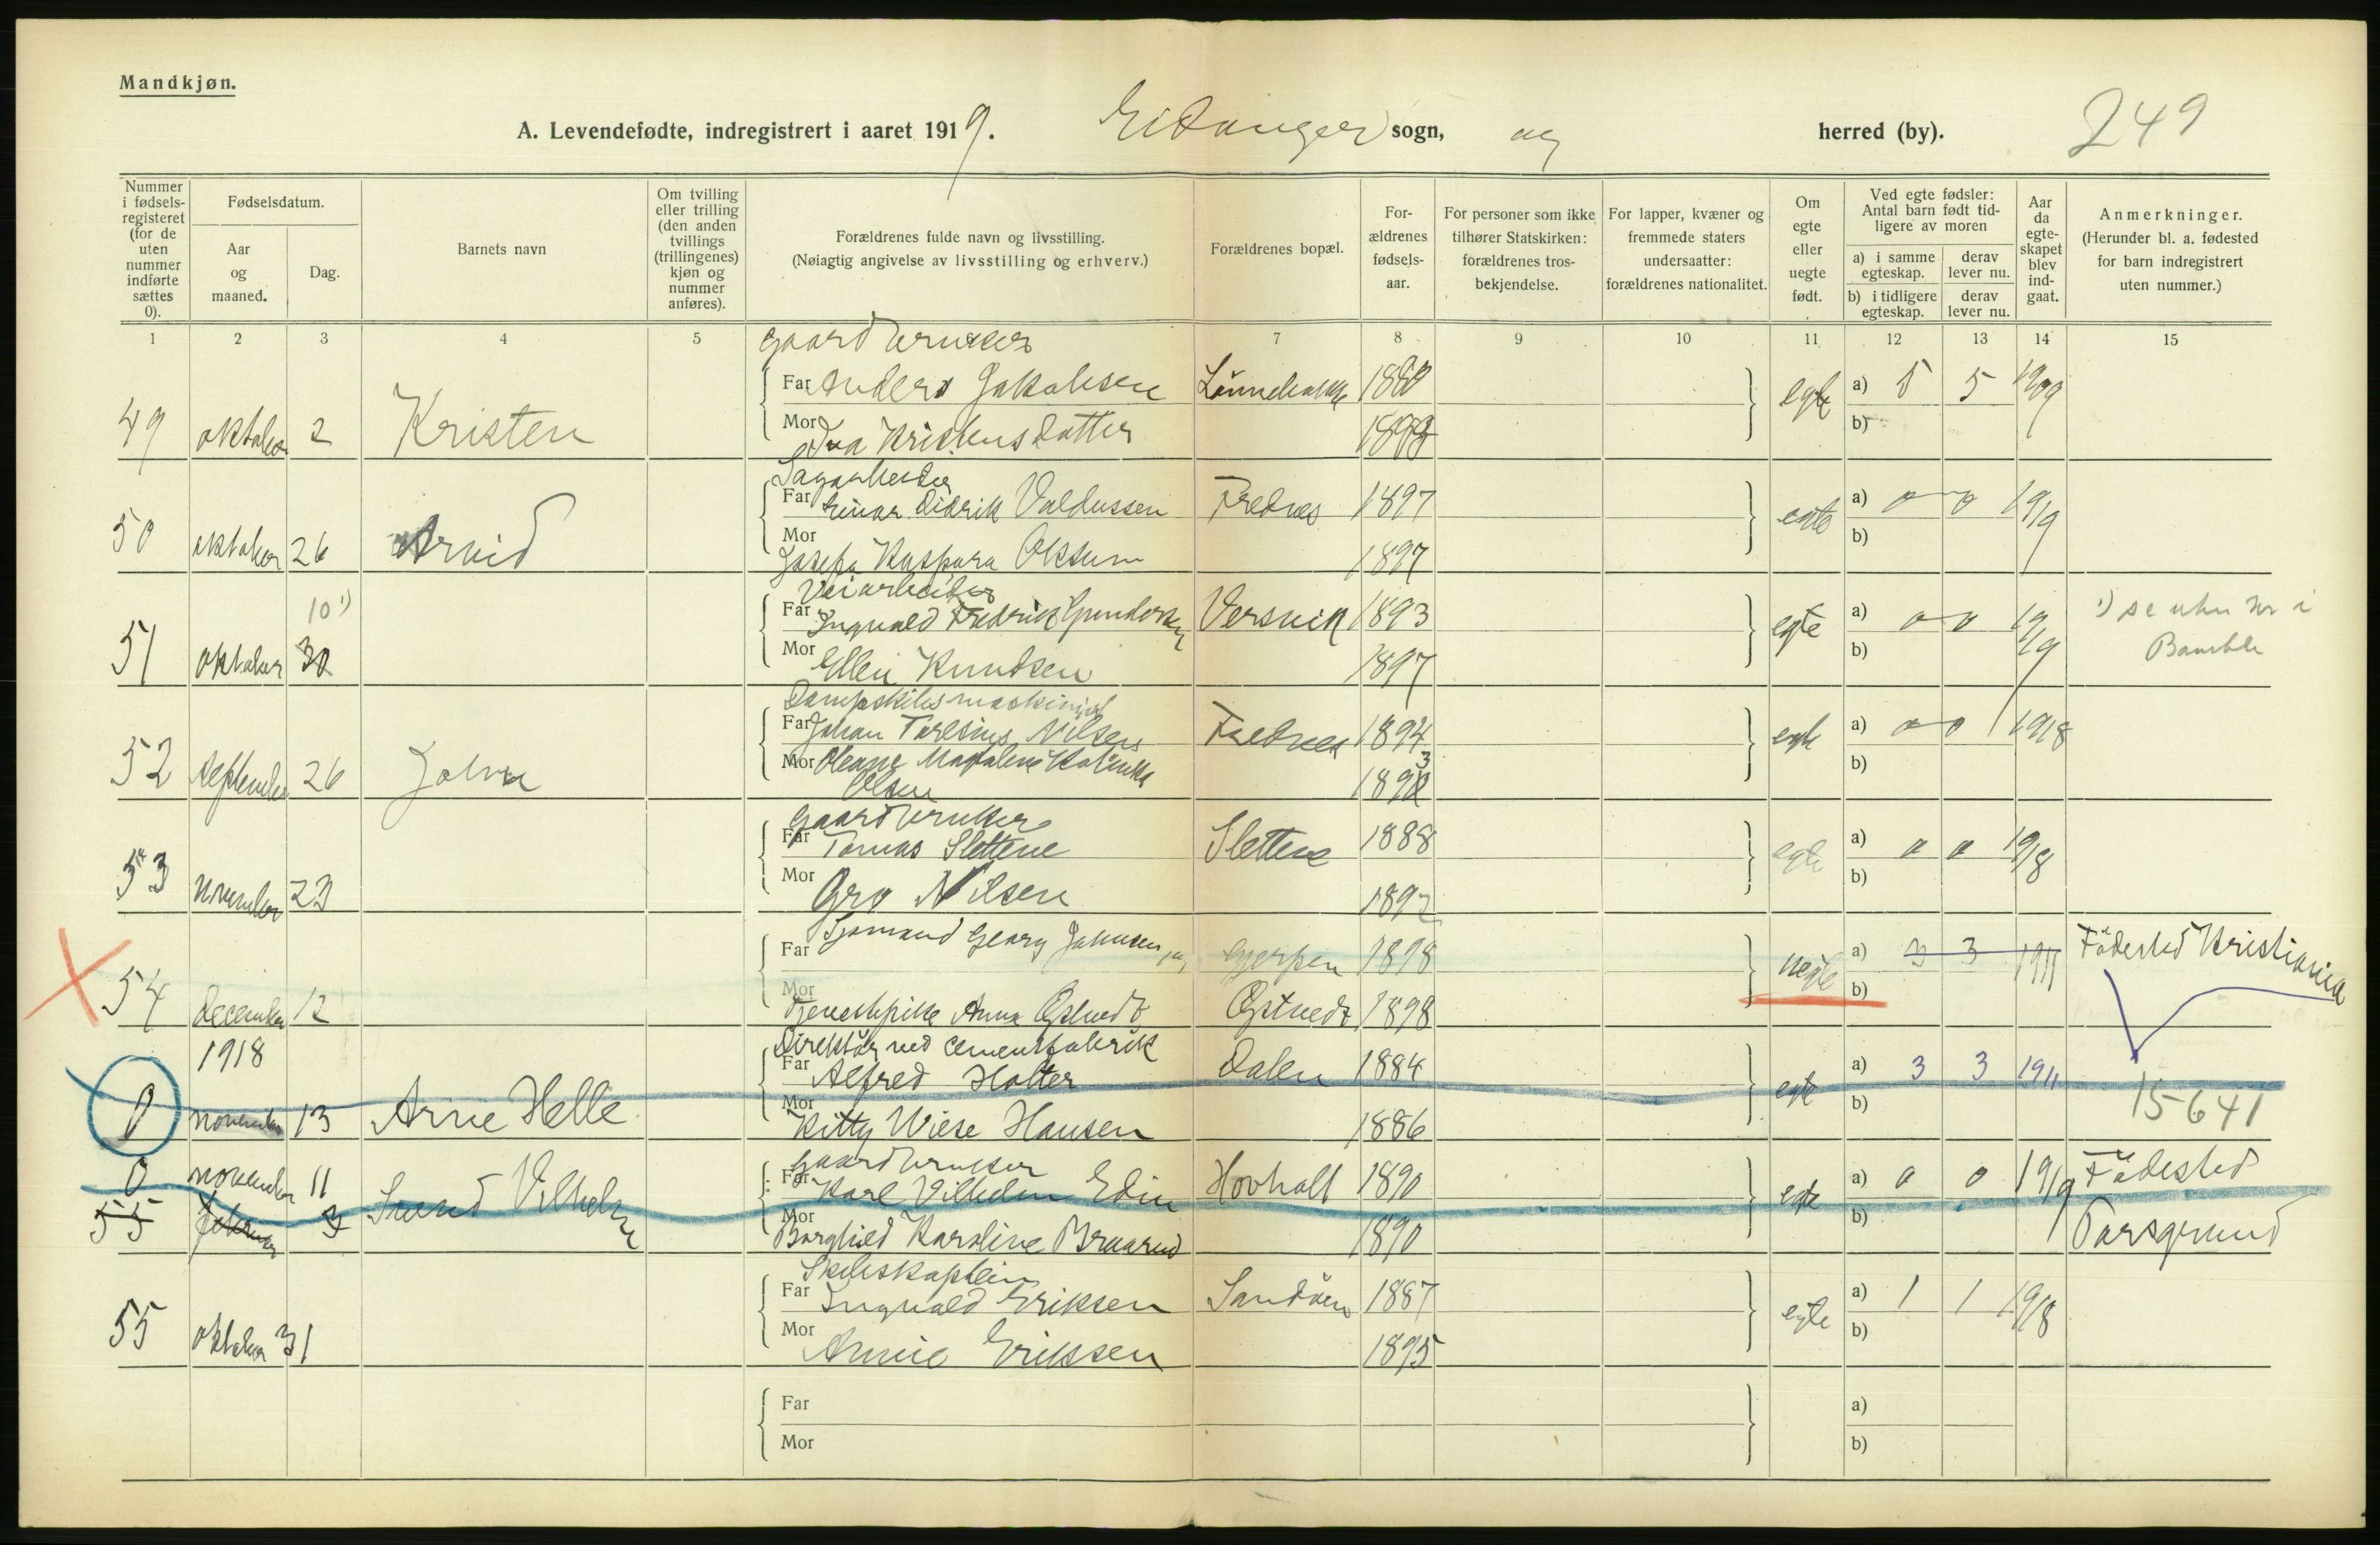 Mandkjøn.
A. Levendefødte, indregistrert i aaret 1919. Eidanger sogn, og herred (by). 249
Nummer i fødsels-registeret (for de uten nummer indførte sættes 0).
Fødselsdatum.
Aar og maaned.
Dag.
Barnets navn
Om tvilling eller trilling (den anden tvillings (trillingenes) kjøn og nummer anføres).
Forældrenes fulde navn og livsstilling.
(Nøiagtig angivelse av livsstilling og erhverv.)
Forældrenes bopæl.
For-ældrenes fødsels-aar.
For personer som ikke tilhører Statskirken: forældrenes tros-bekjendelse.
For lapper, kvæner og fremmede staters undersaatter: forældrenes nationalitet.
Om egte eller uegte født.
Ved egte fødsler: Antal barn født tid-ligere av moren
a) i samme egteskap. derav lever nu.
b) i tidligere egteskap. derav lever nu.
Aar da egte-skapet blev ind-gaat.
Anmerkninger.
(Herunder bl. a. fødested for barn indregistrert uten nummer.)
1 2 3 4 5 7 8 9 10 11 12 13 14 15
Gaardbruker
Far Anders Jakobsen 1880 egte a) 5 5 1909
49 oktober 2 Kristen
Mor Kristensdatter b)
Sagarbeider
Far Einar Didrik Valdussen Frednes 1897 egte a) 0 0 1919
50 oktober 26 Arvid
Mor Josefa Kaspara Oksum 1897 b)
10 1)
Veiarbeider
Far Ingvald Fredrik Gundersen Versvik 1893 egte a) 0 0 1919 1) se uten Nr i
51 oktober 30
Mor Ellen Knudsen 1897 b) Bamble
Dampskibsmaskinist
Far Johan Nilsen Frednes 1894 egte a) 0 0 1918
52 September 26 John
Mor Oleane Magdalene Katinka 3 b)
Olsen 1892
Gaardbruker
Far Tomas Slettene Slettene 1888 egte a) 0 0 1918
53 November 23
Mor Gro Nilsen 1892 b)
Sjømand Georg Johnsen
Far Gjerpen 1898 uegte a) 3 3 1911 Födested Kristiania
54 december 12
Mor Tjenestepike Anna Østvedt Østvedt 1898 b)
1918
Direktør ved Cementfabrik
Far Alfred Holter Dalen 1884 egte a) 3 3 1911
0 november 13 Arne Helle
Mor Kitty Wiese Hansen 1886 b) 15641
Gaardbruker
0 november 11
Far Karl Vilhelm Edin Hovholt 1890 egte a) 0 0 1919 Födested
55 februar 3 Svend Vilhelm
Mor Borghild Karoline 1890 b) Porsgrund
Skibskaptein
Far Ingvald Eriksen Sandøen 1887 egte a) 1 1 1918
55 oktober 31
Mor Annie Eriksen 1895 b)
Far a)
Mor b)